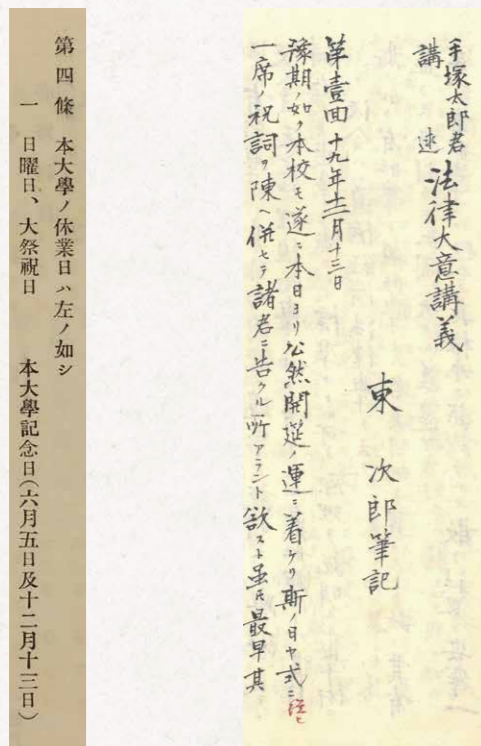 手塚太郎君
講述
法律大意講義
東 次郎筆記
第壹回 十九年十二月十三日
豫期ノ如ク本校モ遂ニ本日ヨリ公然開莚ノ運ニ着ケリ斯ノ日ヤ式ニ
一席ノ祝詞ヲ陳ヘ併セテ諸君ニ告クル所アラント欲スト虽𪜈最早其
第四條 本大學ノ休業日ハ左ノ如シ
一 日曜日、大祭祝日 本大學記念日(六月五日及十二月十三日)